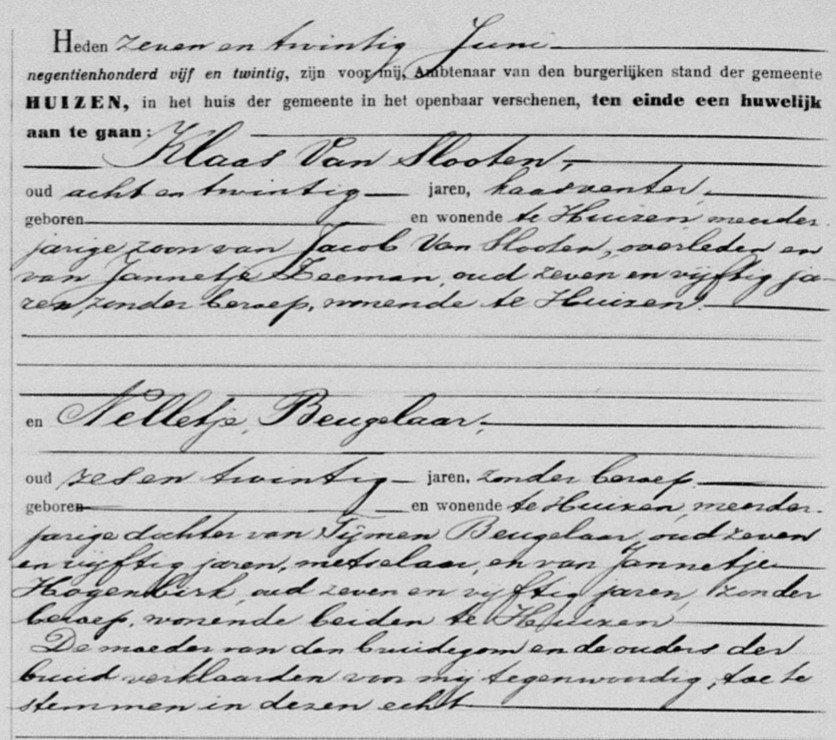 Heden zeven en twintig Juni
negentienhonderd vijf en twintig, zijn voor mij, Ambtenaar van den burgerlijken stand der gemeente
HUIZEN, in het huis der gemeente in het openbaar verschenen, ten einde een huwelijk
aan te gaan:
Klaas Van Slooten,
oud acht en twintig jaren, kaasventer,
geboren en wonende te Huizen, meerder-
jarige zoon van Jacob Van Slooten, overleden en
van Jannetje Zeeman, oud zeven en vijftig ja-
ren, zonder beroep, wonende te Huizen.
en Nelletje Beugelaar,
oud zes en twintig jaren, zonder beroep
geboren en wonende te Huizen, meerder-
jarige dochter van Tijmen Beugelaar, oud zeven
en vijftig jaren, metselaar, en van Jannetje
Hogenbirk, oud zeven en vijftig jaren, zonder
beroep, wonende beiden te Huizen
De moeder van den bruidegom en de ouders der
bruid verklaarden voor mij tegenwoordig, toe te
stemmen in dezen echt